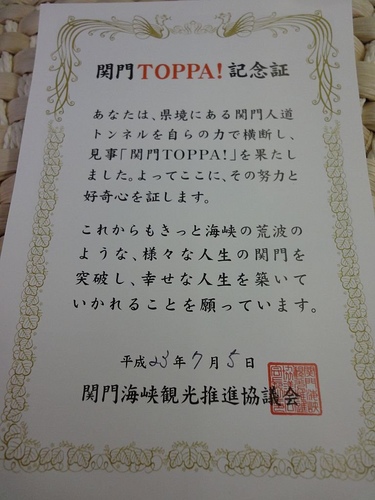 関門TOPPA!記念証
あなたは、県境にある関門人道
トンネルを自らの力で横断し、
見事「関門TOPPA!」を果たし
ました。よってここに、その努力と
好奇心を証します。
これからもきっと海峡の荒波の
ような、様々な人生の関門を
突破し、幸せな人生を築いて
いかれることを願っています。
平成23年7月5日
関門海峡観光推進協議会